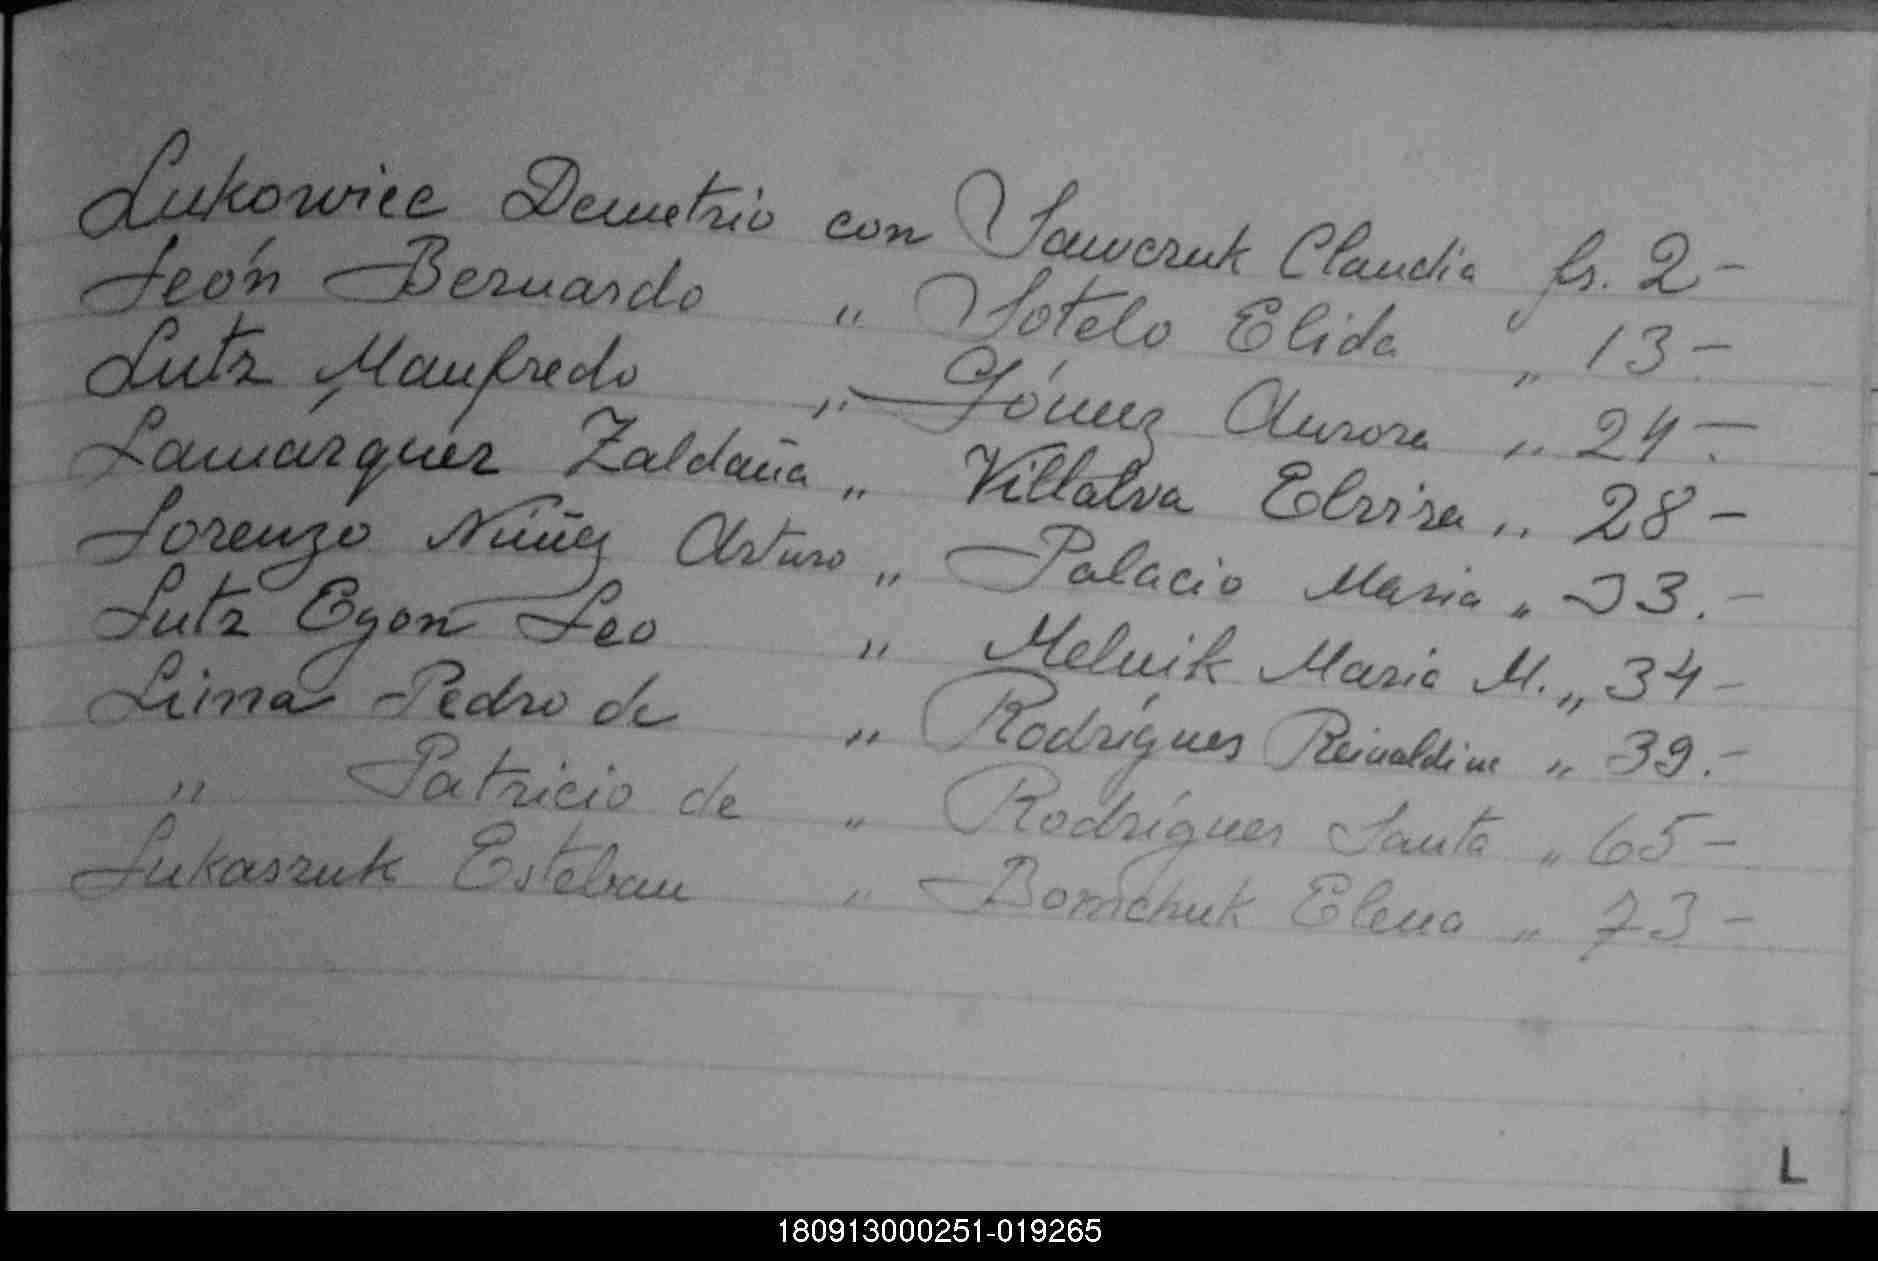 Lukowiec Demetrio con Sawczuk Claudia fs. 2-
León Bernardo " Sotelo Elida " 13-
Lutz Manfredo " Gómez Aurora " 24-
Lamárquez Zaldaña " Villalva Elvira " 28-
Lorenzo Núñez Arturo " Palacio Maria " 33.-
Lutz Egon Leo " Melnik Maria M. " 34-
Lima Pedro de " Rodrígues Reinaldine " 39.-
" Patricio de " Rodrígues Santa " 65-
Lukaszuk Esteban " Elena " 73-
L
180913000251-019265